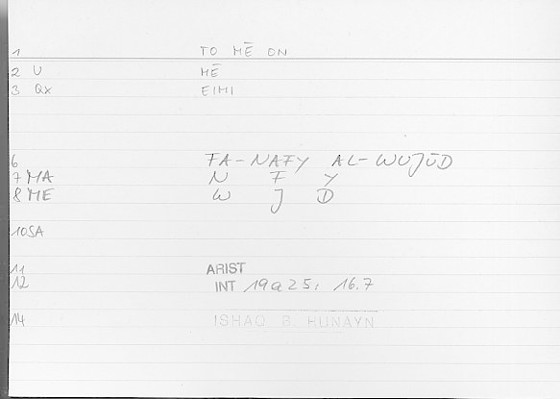 1 TO MĒ ON
2 U MĒ
3 Qx EIMI
6 FA-NAFY AL-WUJŪD
7 MA N F Y
8 ME W J D
10 SA
11 ARIST
12 INT 19a25; 16.7
14 ISHAQ B. HUNAYN